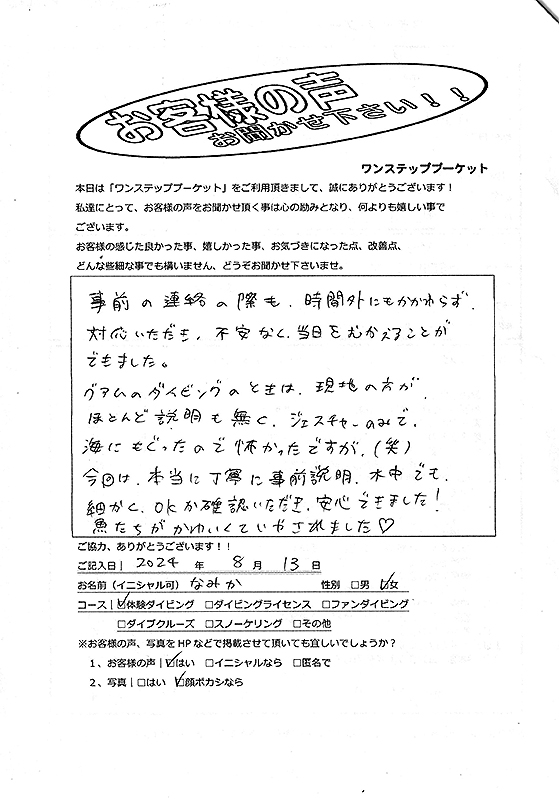 お客様の声
お聞かせ下さい！！
ワンステッププーケット
本日は「ワンステッププーケット」をご利用頂きまして、誠にありがとうございます！
私達にとって、お客様の声をお聞かせ頂く事は心の励みとなり、何よりも嬉しい事で
ございます。
お客様の感じた良かった事、嬉しかった事、お気づきになった点、改善点、
どんな些細な事でも構いません、どうぞお聞かせ下さいませ。
事前の連絡の際も、時間外にもかかわらず、
対応いただき、不安なく、当日をむかえることが
できました。
グアムのダイビングのときは、現地の方が、
ほとんど説明も無く、ジェスチャーのみで、
海にもぐったので怖かったですが、(笑)
今回は、本当に丁寧に事前説明、水中でも、
細かく、OKか確認いただき、安心できました！
魚たちがかわいくていやされました♡
ご協力、ありがとうございます！！
ご記入日｜2024 年 8 月 13 日
お名前（イニシャル可）なみか 性別 □男 ☑女
コース｜☑体験ダイビング □ダイビングライセンス □ファンダイビング
□ダイブクルーズ □スノーケリング □その他
※お客様の声、写真をHPなどで掲載させて頂いても宜しいでしょうか？
1、お客様の声｜☑はい □イニシャルなら □匿名で
2、写真｜□はい ☑顔ボカシなら